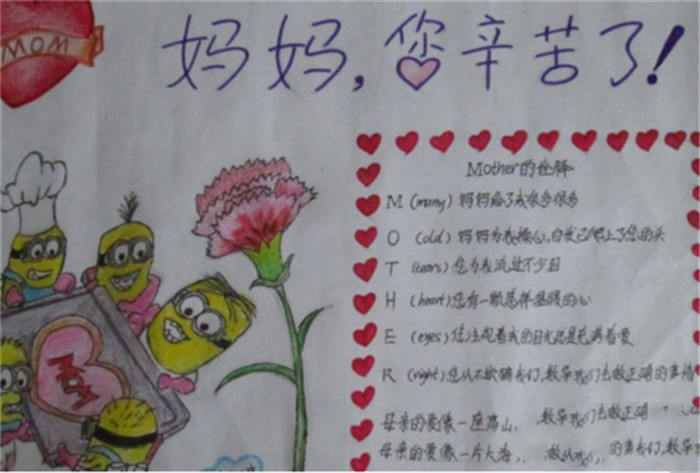 MOM
妈妈,您辛苦了!
Mother的诠释
M (many) 妈妈给了我很多很多
O (old) 妈妈为我操心,白发已爬上了您的头
T (tears) 您为我流过不少泪
H (heart) 您有一颗慈祥温暖的心
E (eyes) 您注视着我的目光总是充满着爱
R (right) 您从不欺骗我们,教导我们去做正确的事情
母亲的爱像一座高山, 教导我们去做正确
母亲的爱像一片大海, 的事我们,教导
MOM